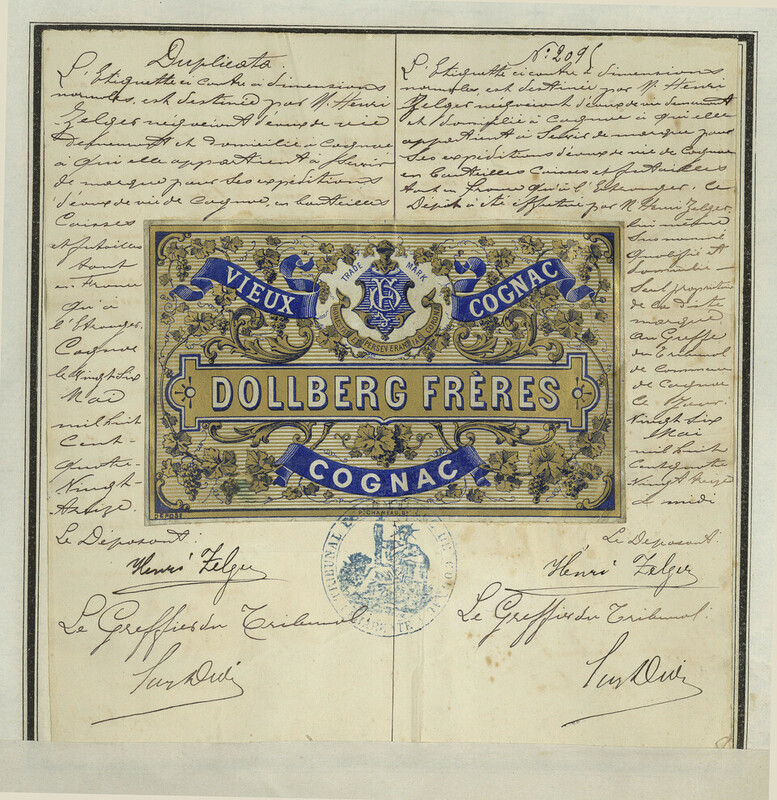 Duplicata.
L'Etiquette ci contre à dimensions
normales, est destinée par M. Henri
Zelger négociant d'eaux de vie
demeurant et domicilié à Cognac
à qui elle appartient à servir
de marque pour ses expéditions
d'eaux de vie de Cognac, en bouteilles
Caisses
et futailles
tant
en France
qu'à
l'Etranger.
Cognac
le Vingt Six
Mai
mil huit
Cent
quatre
Vingt
treize.
Le Déposant:
Henri Zelger
Le Greffier du Tribunal
N° 209
L'Etiquette ci contre à dimensions
normales, est destinée par M. Henri
Zelger négociant d'eaux de vie demeurant
et domicilié à Cognac à qui elle
appartient à Servir de marque pour
Ses expéditions d'eaux de vie de Cognac
en bouteilles Caisses et futailles
tant en France qu'à l'Etranger. Ce
Dépôt a été effectué par M. Henri Zelger.
lui même
Susnommé
qualifié et
domicilié
Seul propriétaire
de la dite
marque.
au Greffe
du Tribunal
de Commerce
de Cognac
le
Vingt Six
Mai
mil huit
Cent quatre
Vingt treize
à midi
Le Déposant:
Henri Zelger
Le Greffier du Tribunal.
TRADE MARK
VIEUX
COGNAC
DOLLBERG FRÈRES
COGNAC
DÉPOSÉ
TRIBUNAL